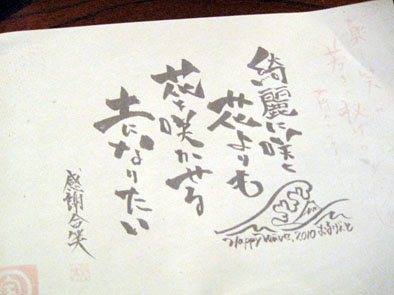 綺麗に咲く
花よりも
花を咲かせる
土になりたい
感謝合笑
Happy Wave. 2010